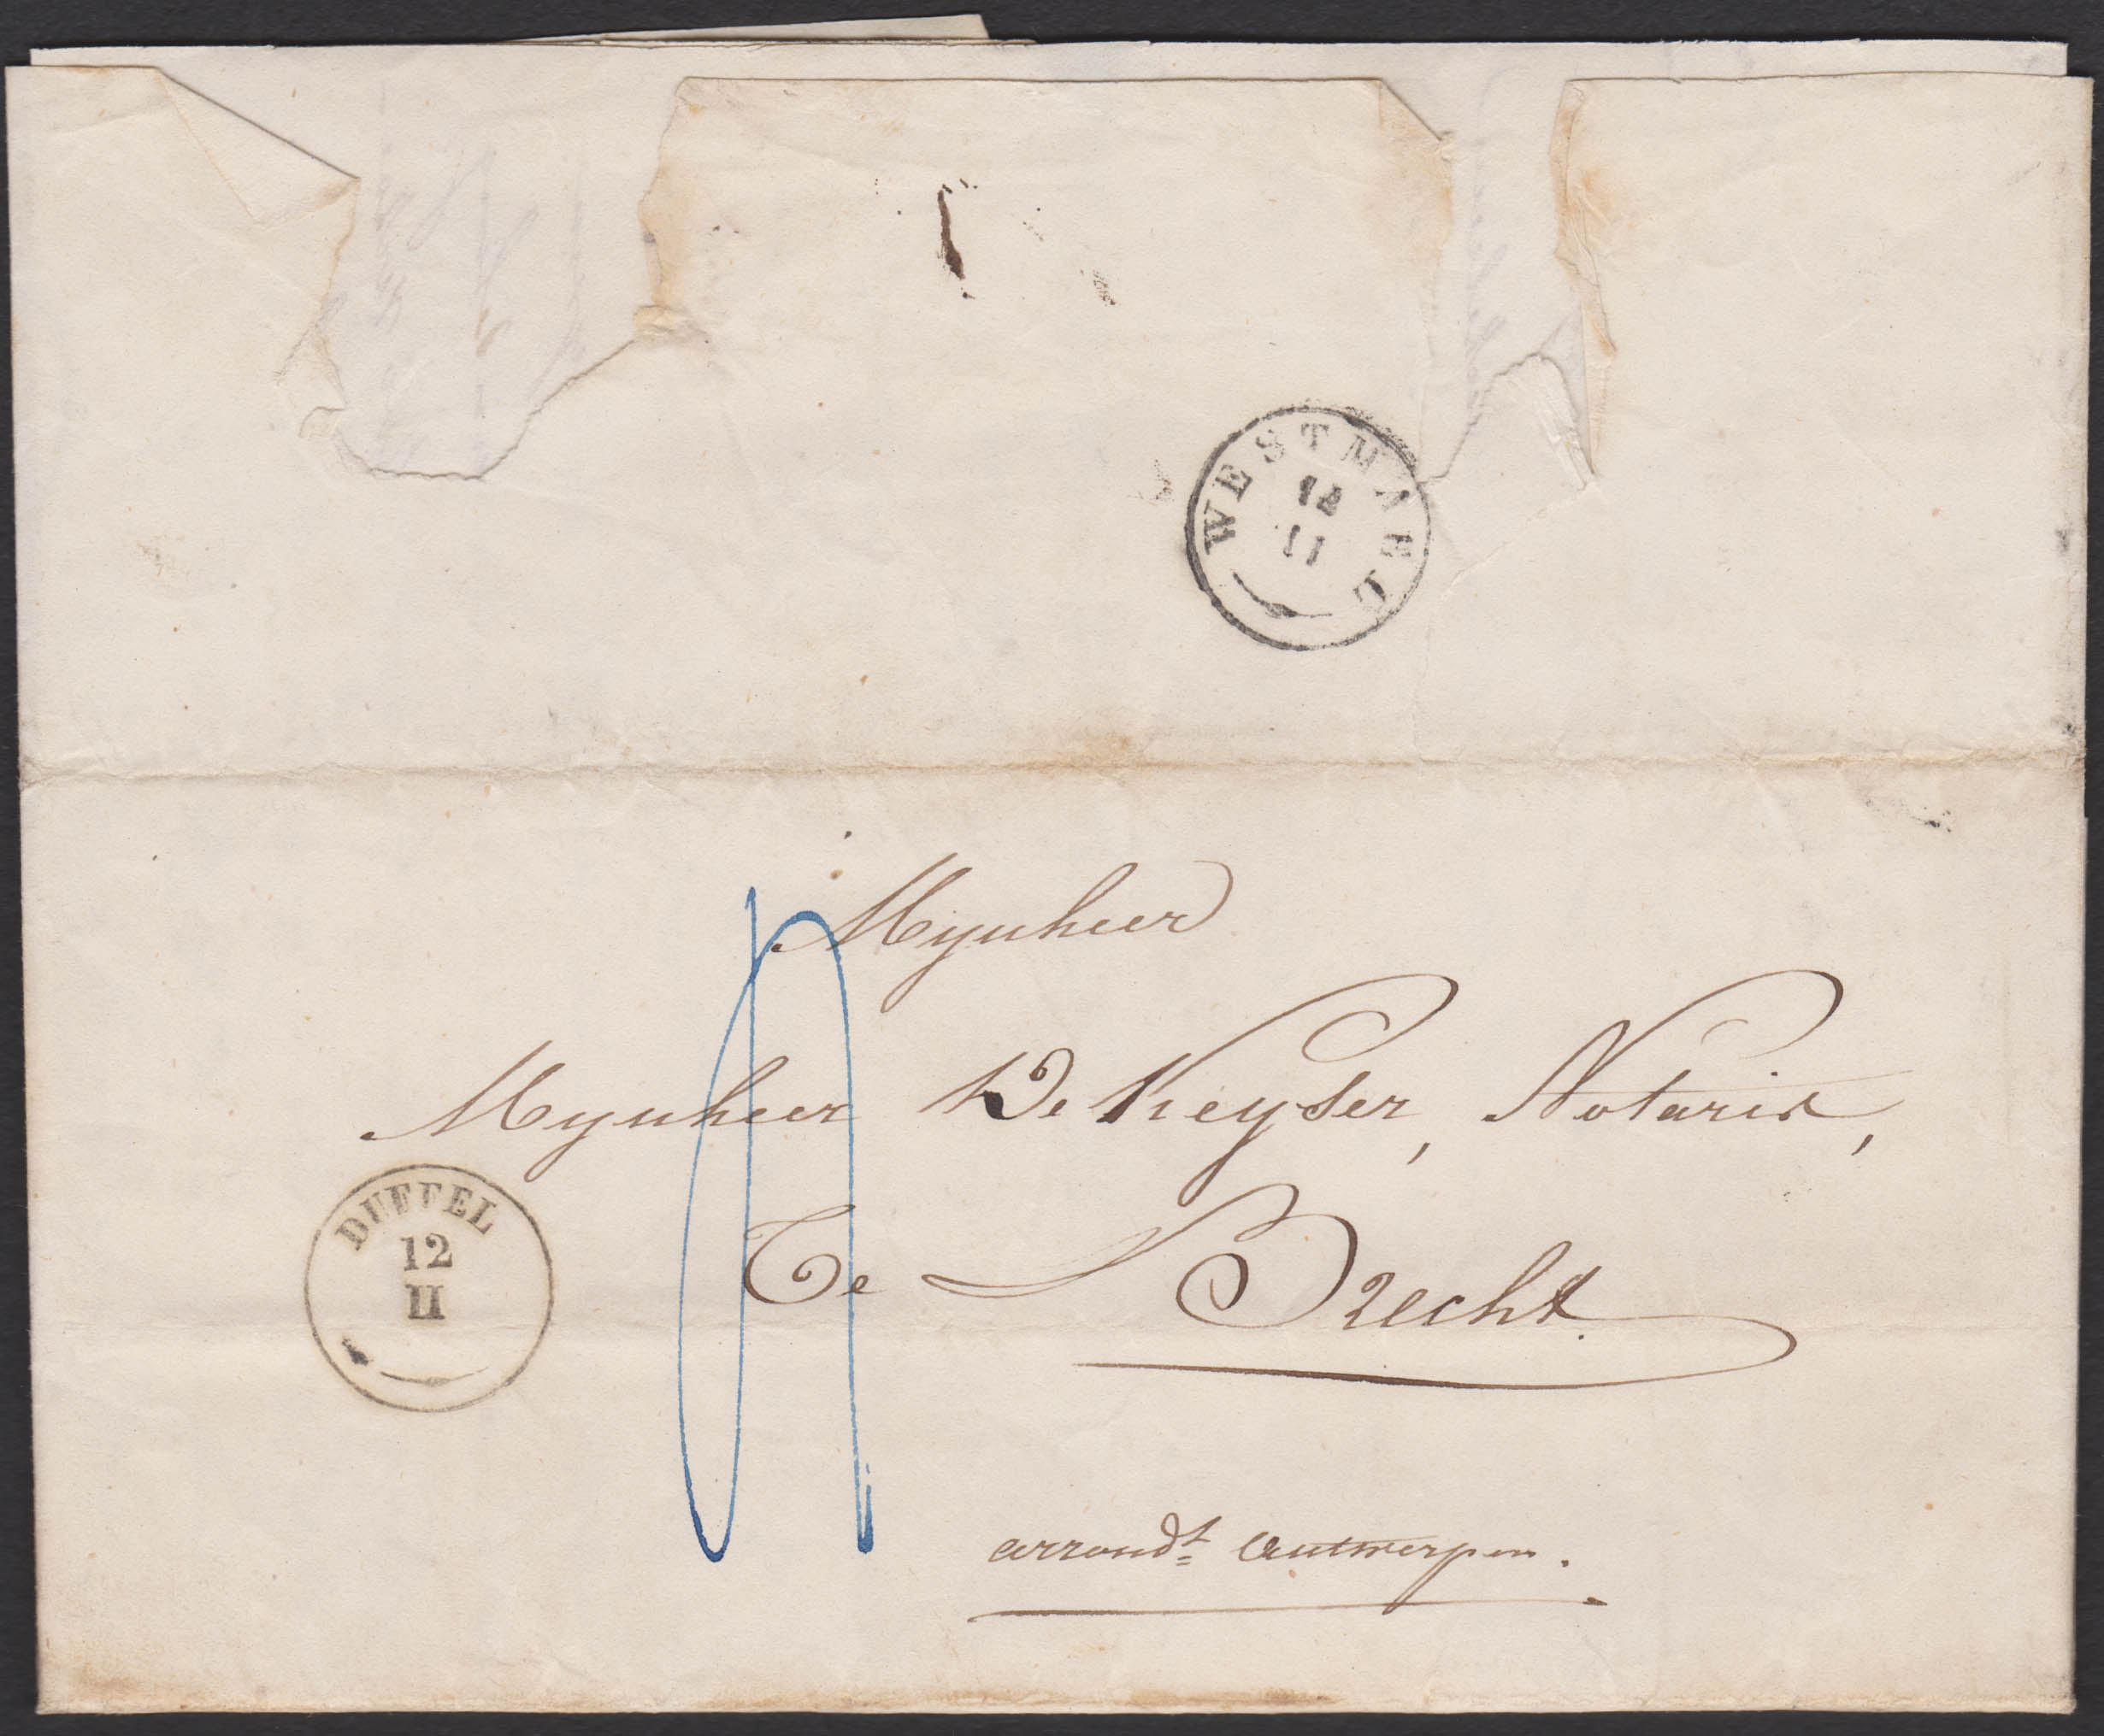 WESTMAEL
12
11
Mynheer
Mynheer De Keyser, Notaris,
DUFFEL
12
II
Te Brecht.
arrondt Antwerpen.